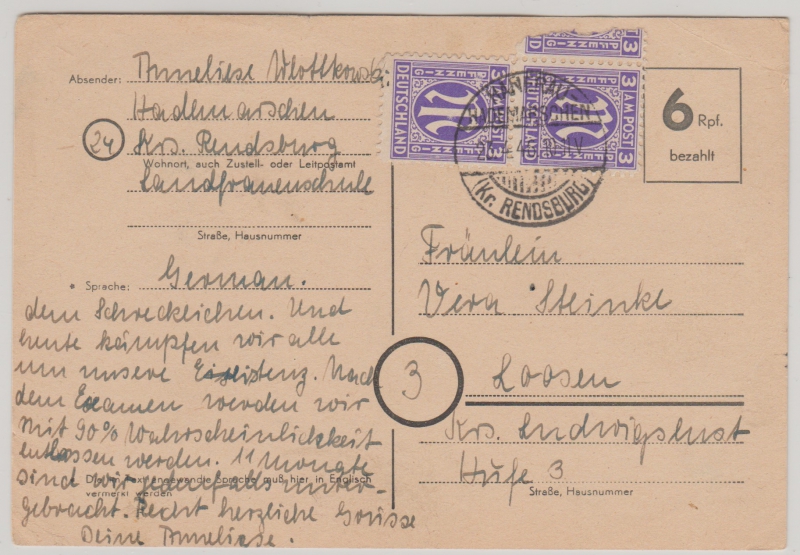 Absender: Anneliese Wlottkowski
Hademarschen
24
Krs. Rendsburg
Wohnort, auch Zustell- oder Leitpostamt
Landfrauenschule
Straße, Hausnummer
• Sprache: German.
dem Schrecklichen. Und
heute kämpfen wir alle
um unsere Existenz. Nach
dem Examen werden wir
mit 90% Wahrscheinlichkeit
entlassen werden. 11 Monate
sind wir jedenfalls unter-
Die angewandte Sprache muß hier in Englisch
vermerkt werden
gebracht. Recht herzliche Grüsse
Deine Anneliese.
DEUTSCHLAND
PFENNIG
3 AM POST 3
PFENNIG
D
3
PFENNIG
3 AM POST 3
HADEMARSCHEN
(Kr. RENDSBURG)
6 Rpf.
bezahlt
Fräulein
Vera Steinke
3
Loosen
Krs. Ludwigslust
Hufe 3
Straße, Hausnummer